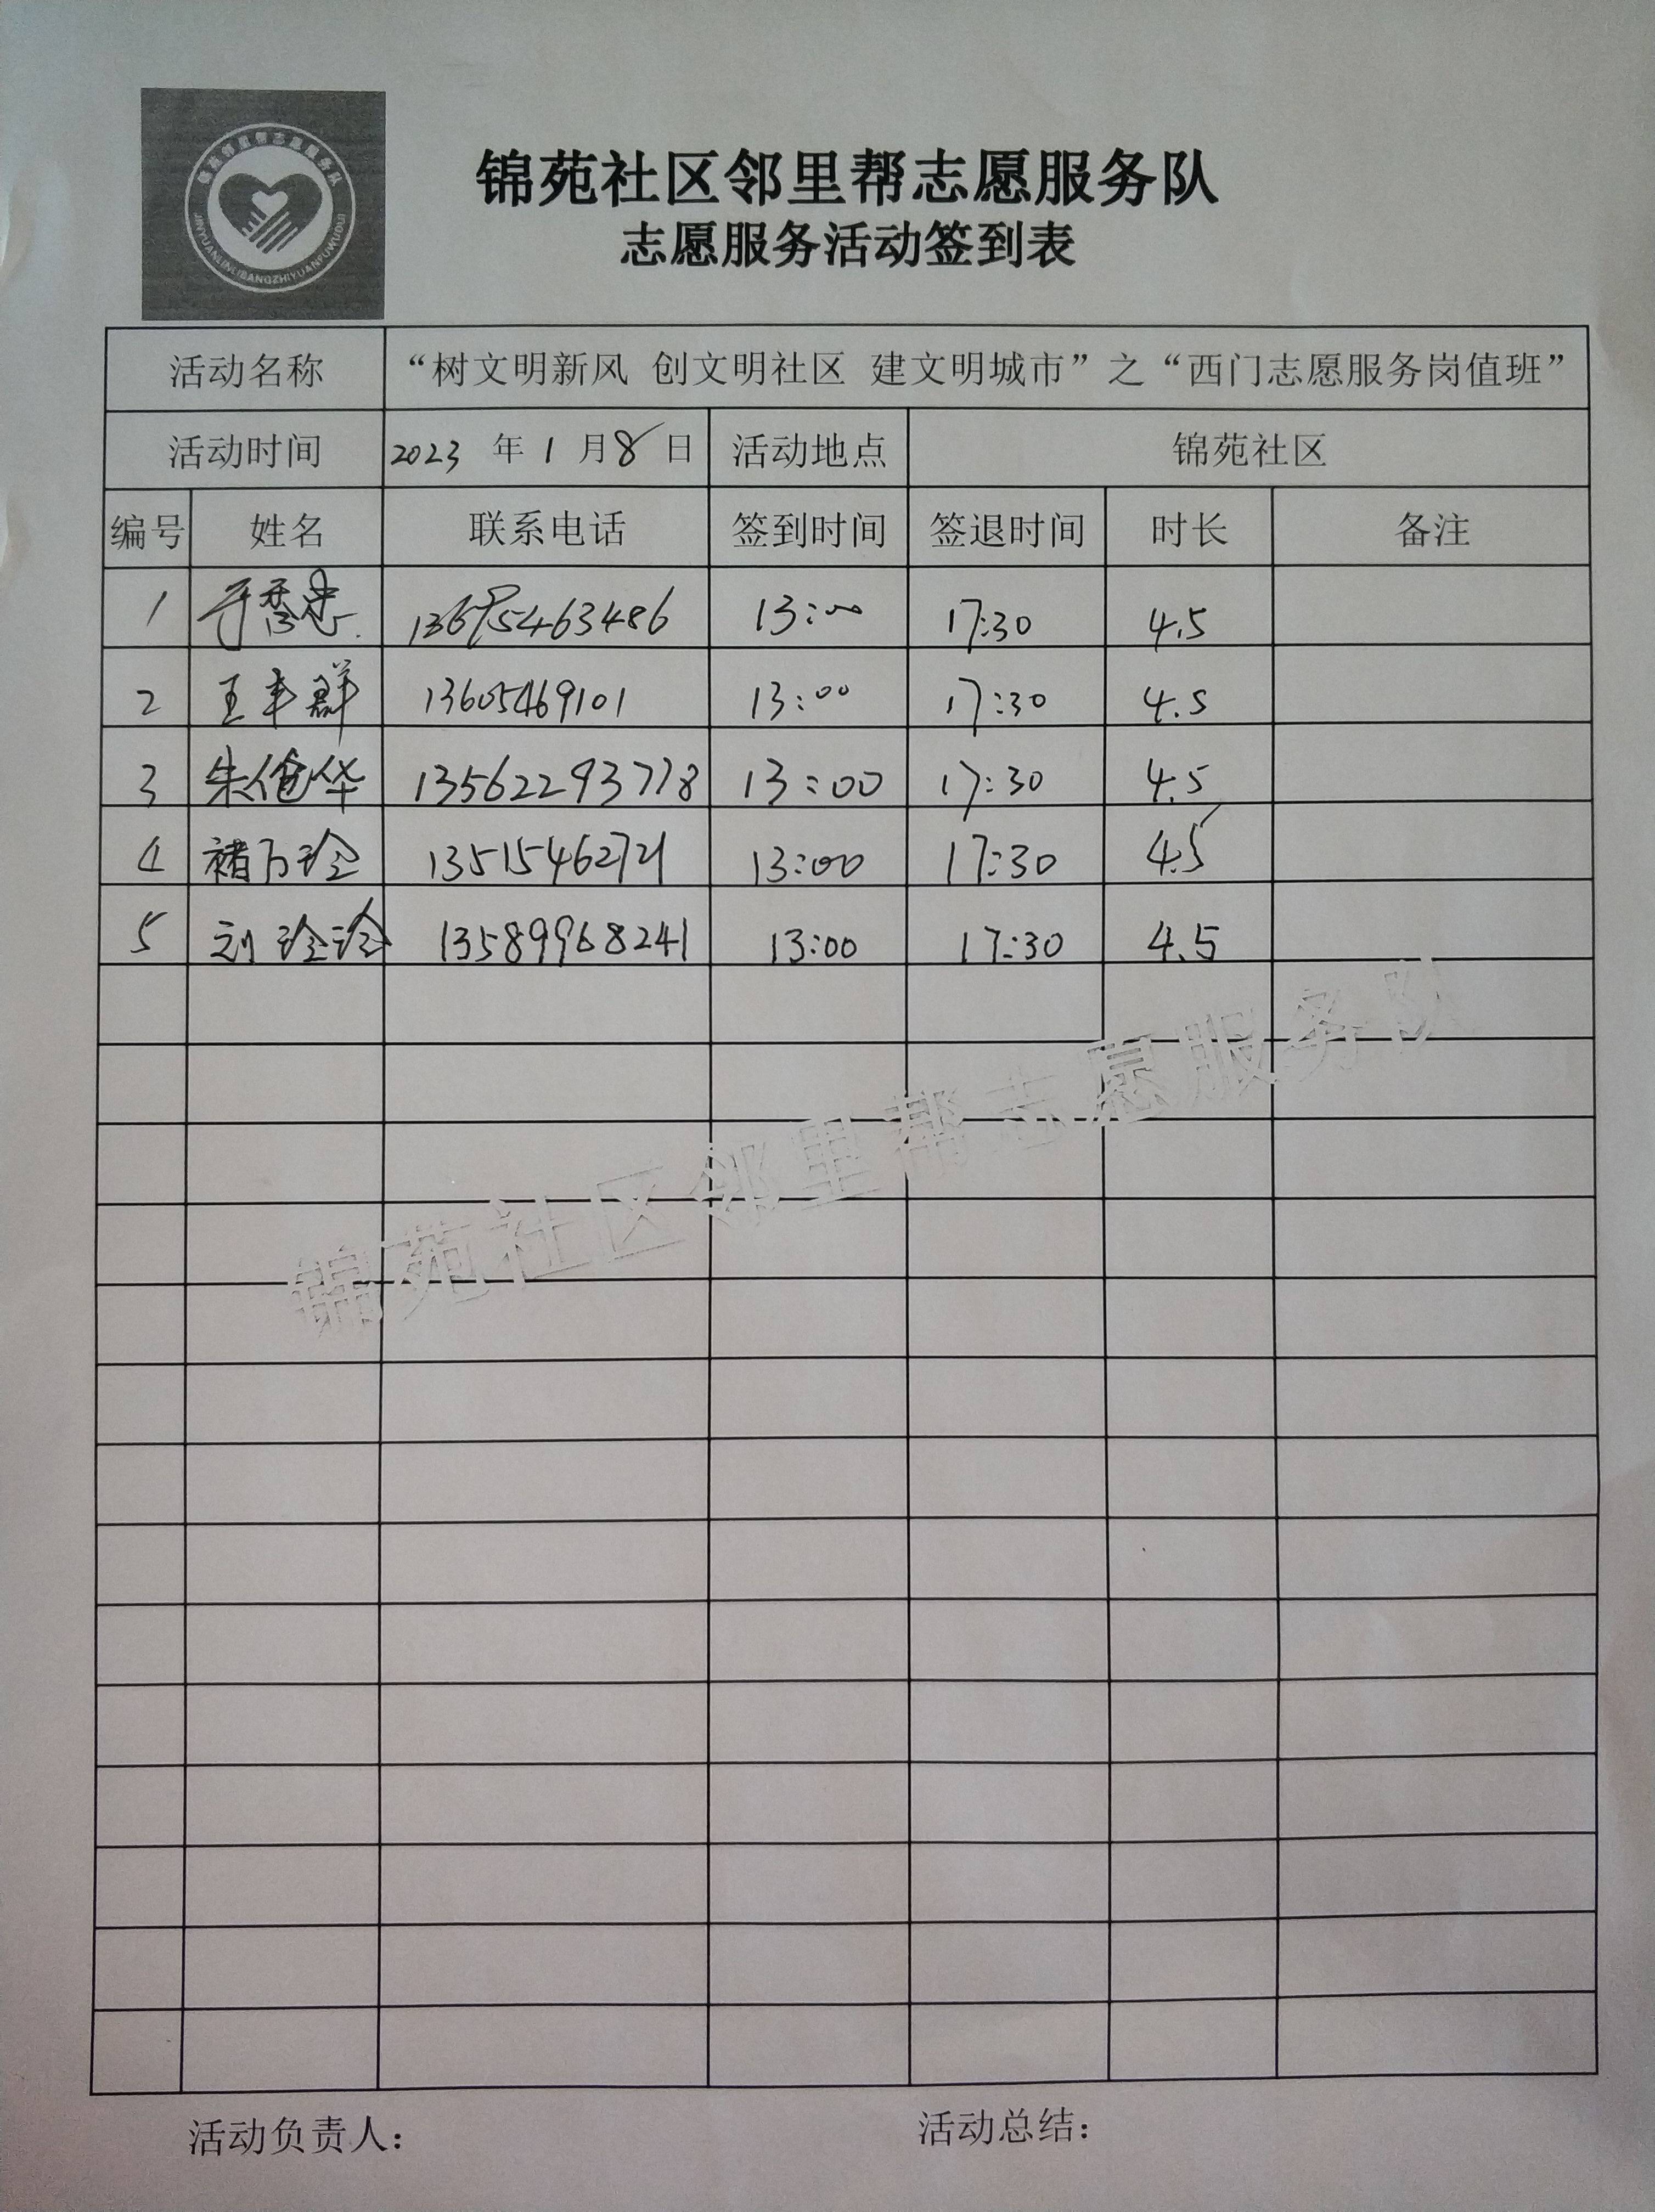 锦苑邻里帮志愿服务队
JINYUANLINLIBANGZHIYUANFUWUDUI
锦苑社区邻里帮志愿服务队
志愿服务活动签到表
活动名称 “树文明新风 创文明社区 建文明城市”之“西门志愿服务岗值班”
活动时间 2023 年 1 月 8 日 活动地点 锦苑社区
编号 姓名 联系电话 签到时间 签退时间 时长 备注
1 于秀忠 13:00 17:30 4.5
2 王丰群 13605469101 13:00 17:30 4.5
3 朱华 13562293778 13:00 17:30 4.5
4 褚万珍 13515462721 13:00 17:30 4.5
5 刘珍珍 13589968241 13:00 17:30 4.5
锦苑社区邻里帮志愿服务队
活动负责人： 活动总结：